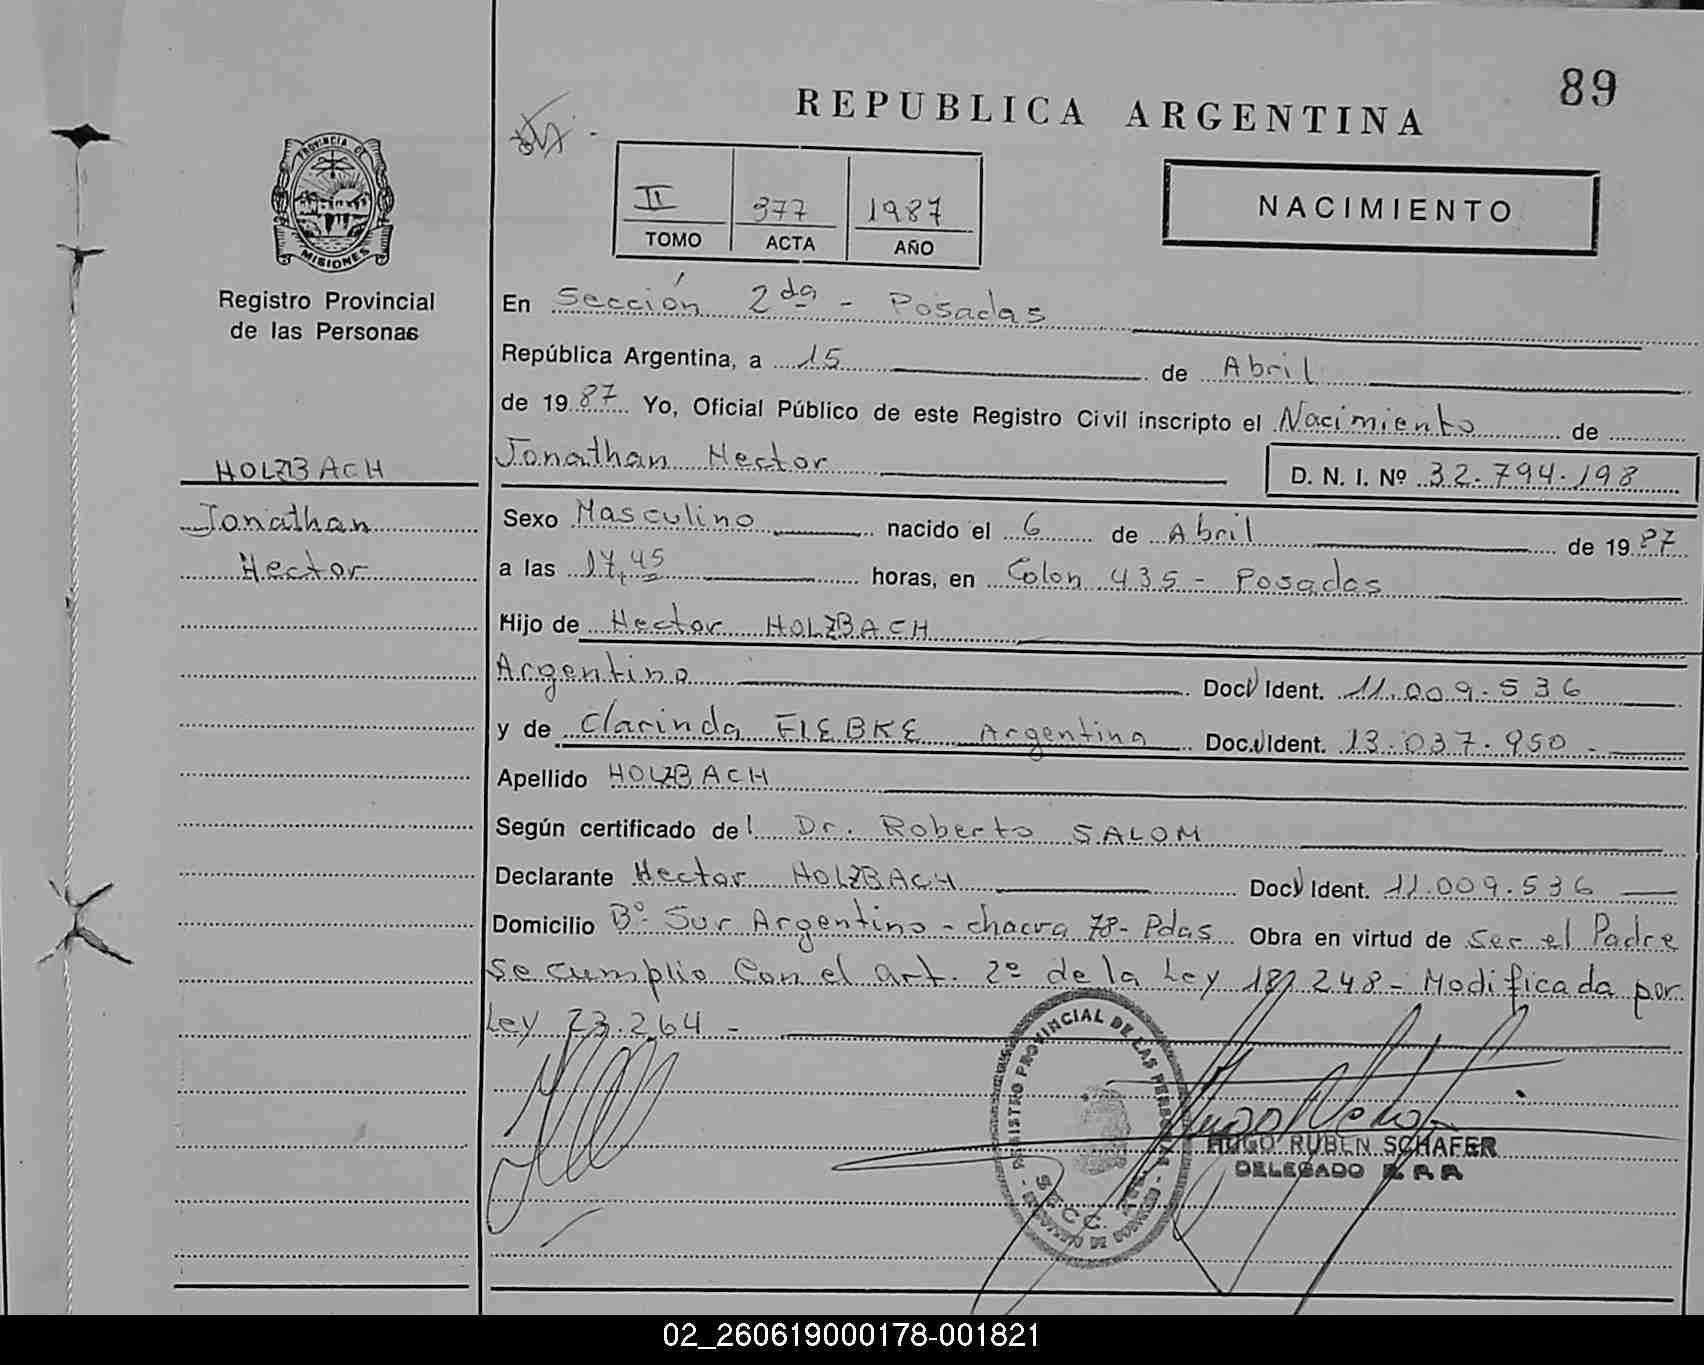 89
REPUBLICA ARGENTINA
PROVINCIA DE
MISIONES
Registro Provincial
de las Personas
II 377 1987
TOMO ACTA AÑO
NACIMIENTO
En Sección 2da - Posadas
República Argentina, a 15 de Abril
de 1987 Yo, Oficial Público de este Registro Civil inscripto el Nacimiento de
Jonathan Hector D. N. I. Nº 32.794.198
HOLZBACH
Jonathan
Hector
Sexo Masculino nacido el 6 de Abril de 1987
a las 17,45 horas, en Colon 435 - Posadas
Hijo de Hector HOLZBACH
Argentino Doc. Ident. 11.009.536
y de Clarinda FIEBKE Argentina Doc. Ident. 13.037.950 -
Apellido HOLZBACH
Según certificado del Dr. Roberto SALOM
Declarante Hector HOLZBACH Doc. Ident. 11.009.536
Domicilio Bº Sur Argentino - chacra 78 - Pdas Obra en virtud de ser el Padre
se cumplio Con el art. 2º de la Ley 18.248 - Modificada por
Ley 23.264 -
REGISTRO PROVINCIAL DE LAS PERSONAS
SECC.
HUGO RUBEN SCHAFER
DELEGADO
02_260619000178-001821